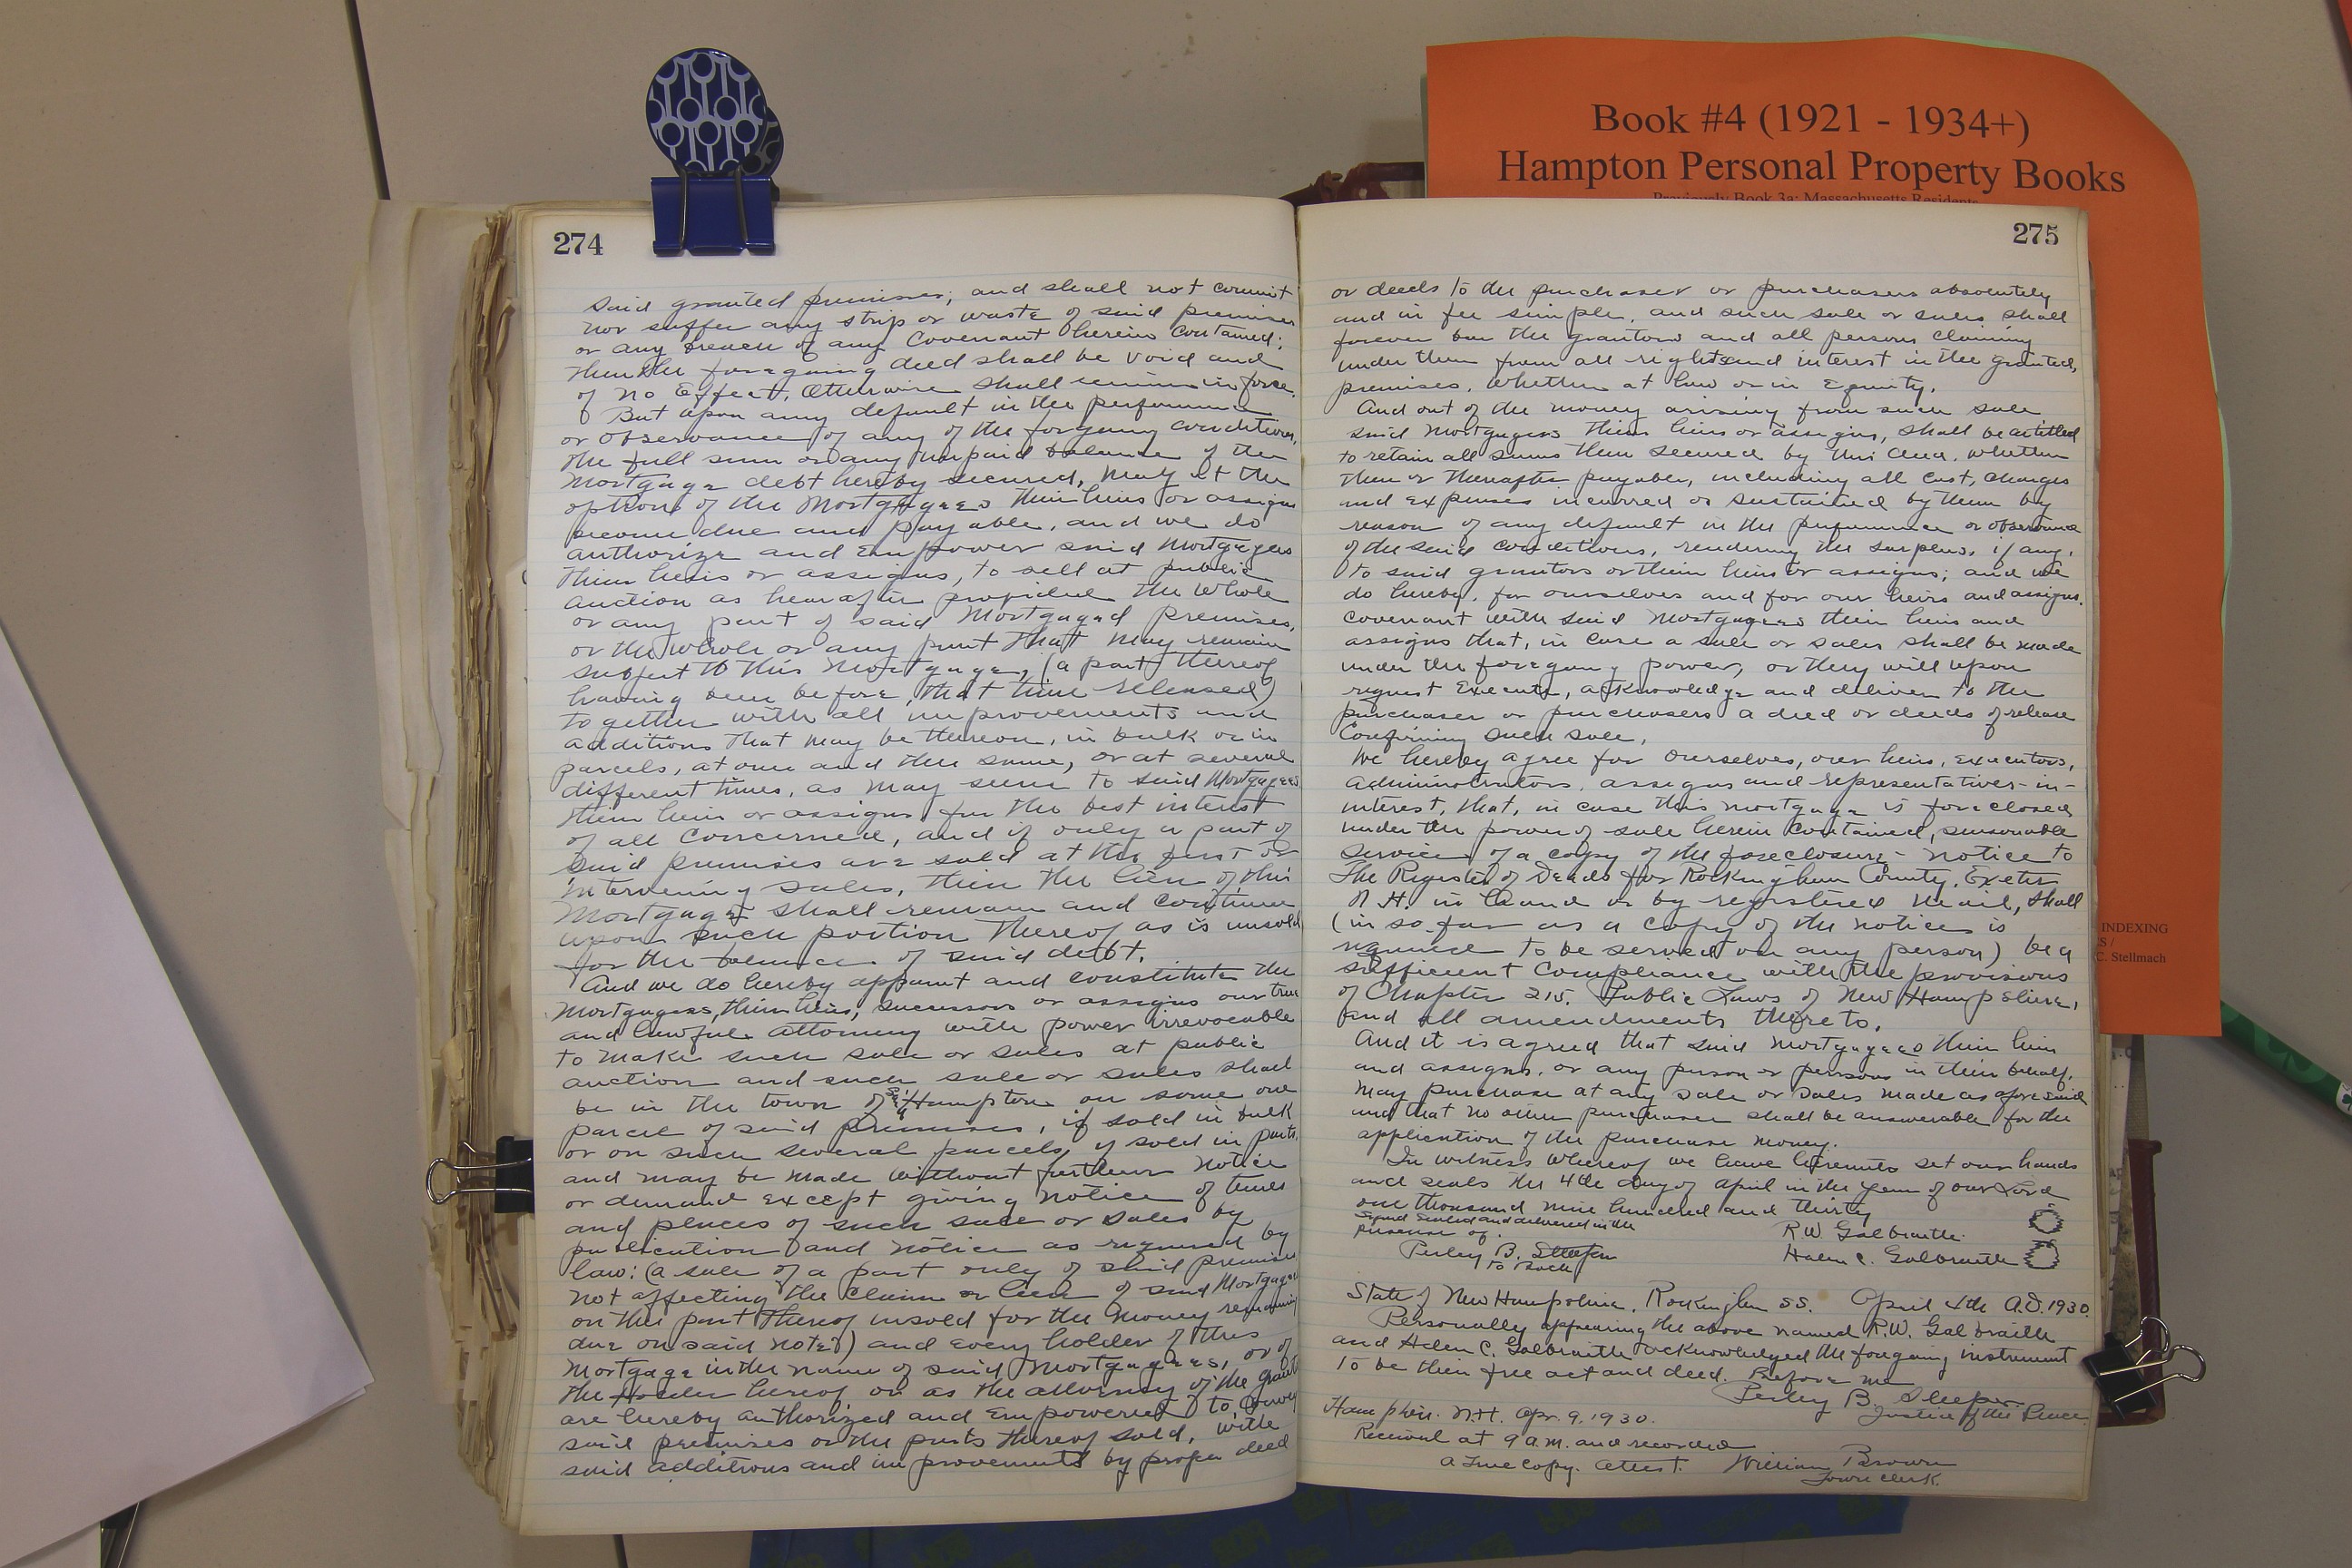 Book #4 (1921 - 1934+)
Hampton Personal Property Books
Previously Book 3a: Massachusetts Residents
INDEXING
S /
C. Stellmach
274
said granted premises; and shall not commit
nor suffer any strip or waste of said premises
or any breach of any Covenant herein contained;
then the foregoing deed shall be void and
of no Effect, Otherwise shall remain in force.
But upon any default in the performance
or observance of any of the forgoing conditions,
the full sum or any unpaid balance of the
Mortgage debt hereby secured, may at the
option of the Mortgagees their heirs or assigns
become due and payable, and we do
authorize and Empower said Mortgagees
their heirs or assigns, to sell at public
auction as hearafter provided the whole
or any part of said Mortgaged premises,
or the whole or any part that may remain
subject to this Mortgage, (a part thereof
having been before that time released)
together with all improvements and
additions that may be thereon, in bulk or in
parcels, at one and the same, or at several
different times, as may seem to said Mortgagees
their heirs or assigns for the best interest
of all concerned, and if only a part of
said premises are sold at the first or
intervening sales, then the lien of this
Mortgage shall remain and continue
upon such portion thereof as is unsold
for the balance of said debt.
And we do hereby appoint and constitute the
Mortgagees, their heirs, successors or assigns our true
and lawful attorney with power irrevocable
to make such sale or sales at public
auction and such sale or sales shall
be in the town of Hampton on some one
parcel of said premises, if sold in bulk
or on such several parcels, if sold in parts,
and may be made without further notice
or demand except giving notice of times
and places of such sale or sales by
publication and notice as required by
law: (a sale of a part only of said premises
not affecting the claim or lien of said Mortgagees
on the part thereof unsold for the money remaining
due on said note) and every holder of this
Mortgage in the name of said Mortgagees, or of
the Holder hereof or as the attorney of the grantors
are hereby authorized and Empowered to convey
said premises or the parts thereof sold, with
said additions and improvements by proper deed
275
or deeds to the purchaser or purchasers absolutely
and in fee simple, and such sale or sales shall
forever bar the grantors and all persons claiming
under them from all rights and interest in the granted
premises, whether at law or in Equity.
And out of the money arising from such sale
said Mortgagees their heirs or assigns, shall be entitled
to retain all sums then secured by this deed, whether
then or thereafter payable, including all cost, charges
and expenses incurred or sustained by them by
reason of any default in the performance or observance
of the said conditions, rendering the surplus, if any,
to said grantors or their heirs or assigns; and we
do hereby, for ourselves and for our heirs and assigns,
covenant with said Mortgagees their heirs and
assigns that, in case a sale or sales shall be made
under the foregoing power, or they will upon
request Execute, acknowledge and deliver to the
purchaser or purchasers a deed or deeds of release
Confirming such sale.
We hereby agree for ourselves, our heirs, executors,
administrators, assigns and representatives-in-
interest, that, in case this mortgage is foreclosed
under the power of sale herein contained, seasonable
service of a copy of the foreclosure-notice to
The Register of Deeds for Rockingham County, Exeter
N.H. in hand or by registered mail, shall
(in so far as a copy of the notice is
required to be served on any person) be a
sufficient compliance with the provisions
of Chapter 215. Public Laws of New Hampshire,
and all amendments thereto.
And it is agreed that said Mortgagees their heirs
and assigns, or any person or persons in their behalf,
may purchase at any sale or sales made as aforesaid
and that no other purchaser shall be answerable for the
application of the purchase money.
In witness whereof we have hereunto set our hands
and seals the 4th day of April in the year of our Lord
one thousand nine hundred and thirty
Signed Sealed and delivered in the
presense of.
R.W. Galbraith
Perley B. Sleeper
to Both
Helen C. Galbraith
State of New Hampshire, Rockingham SS. April 4th A.D. 1930.
Personally appearing the above named R.W. Galbraith
and Helen C. Galbraith acknowledged the forgoing instrument
to be their free act and deed. Before me
Perley B. Sleeper
Justice of the Peace
Hampton. N.H. Apr. 9. 1930.
Received at 9 a.m. and recorded
a True copy. attest. William Brown
Town Clerk.